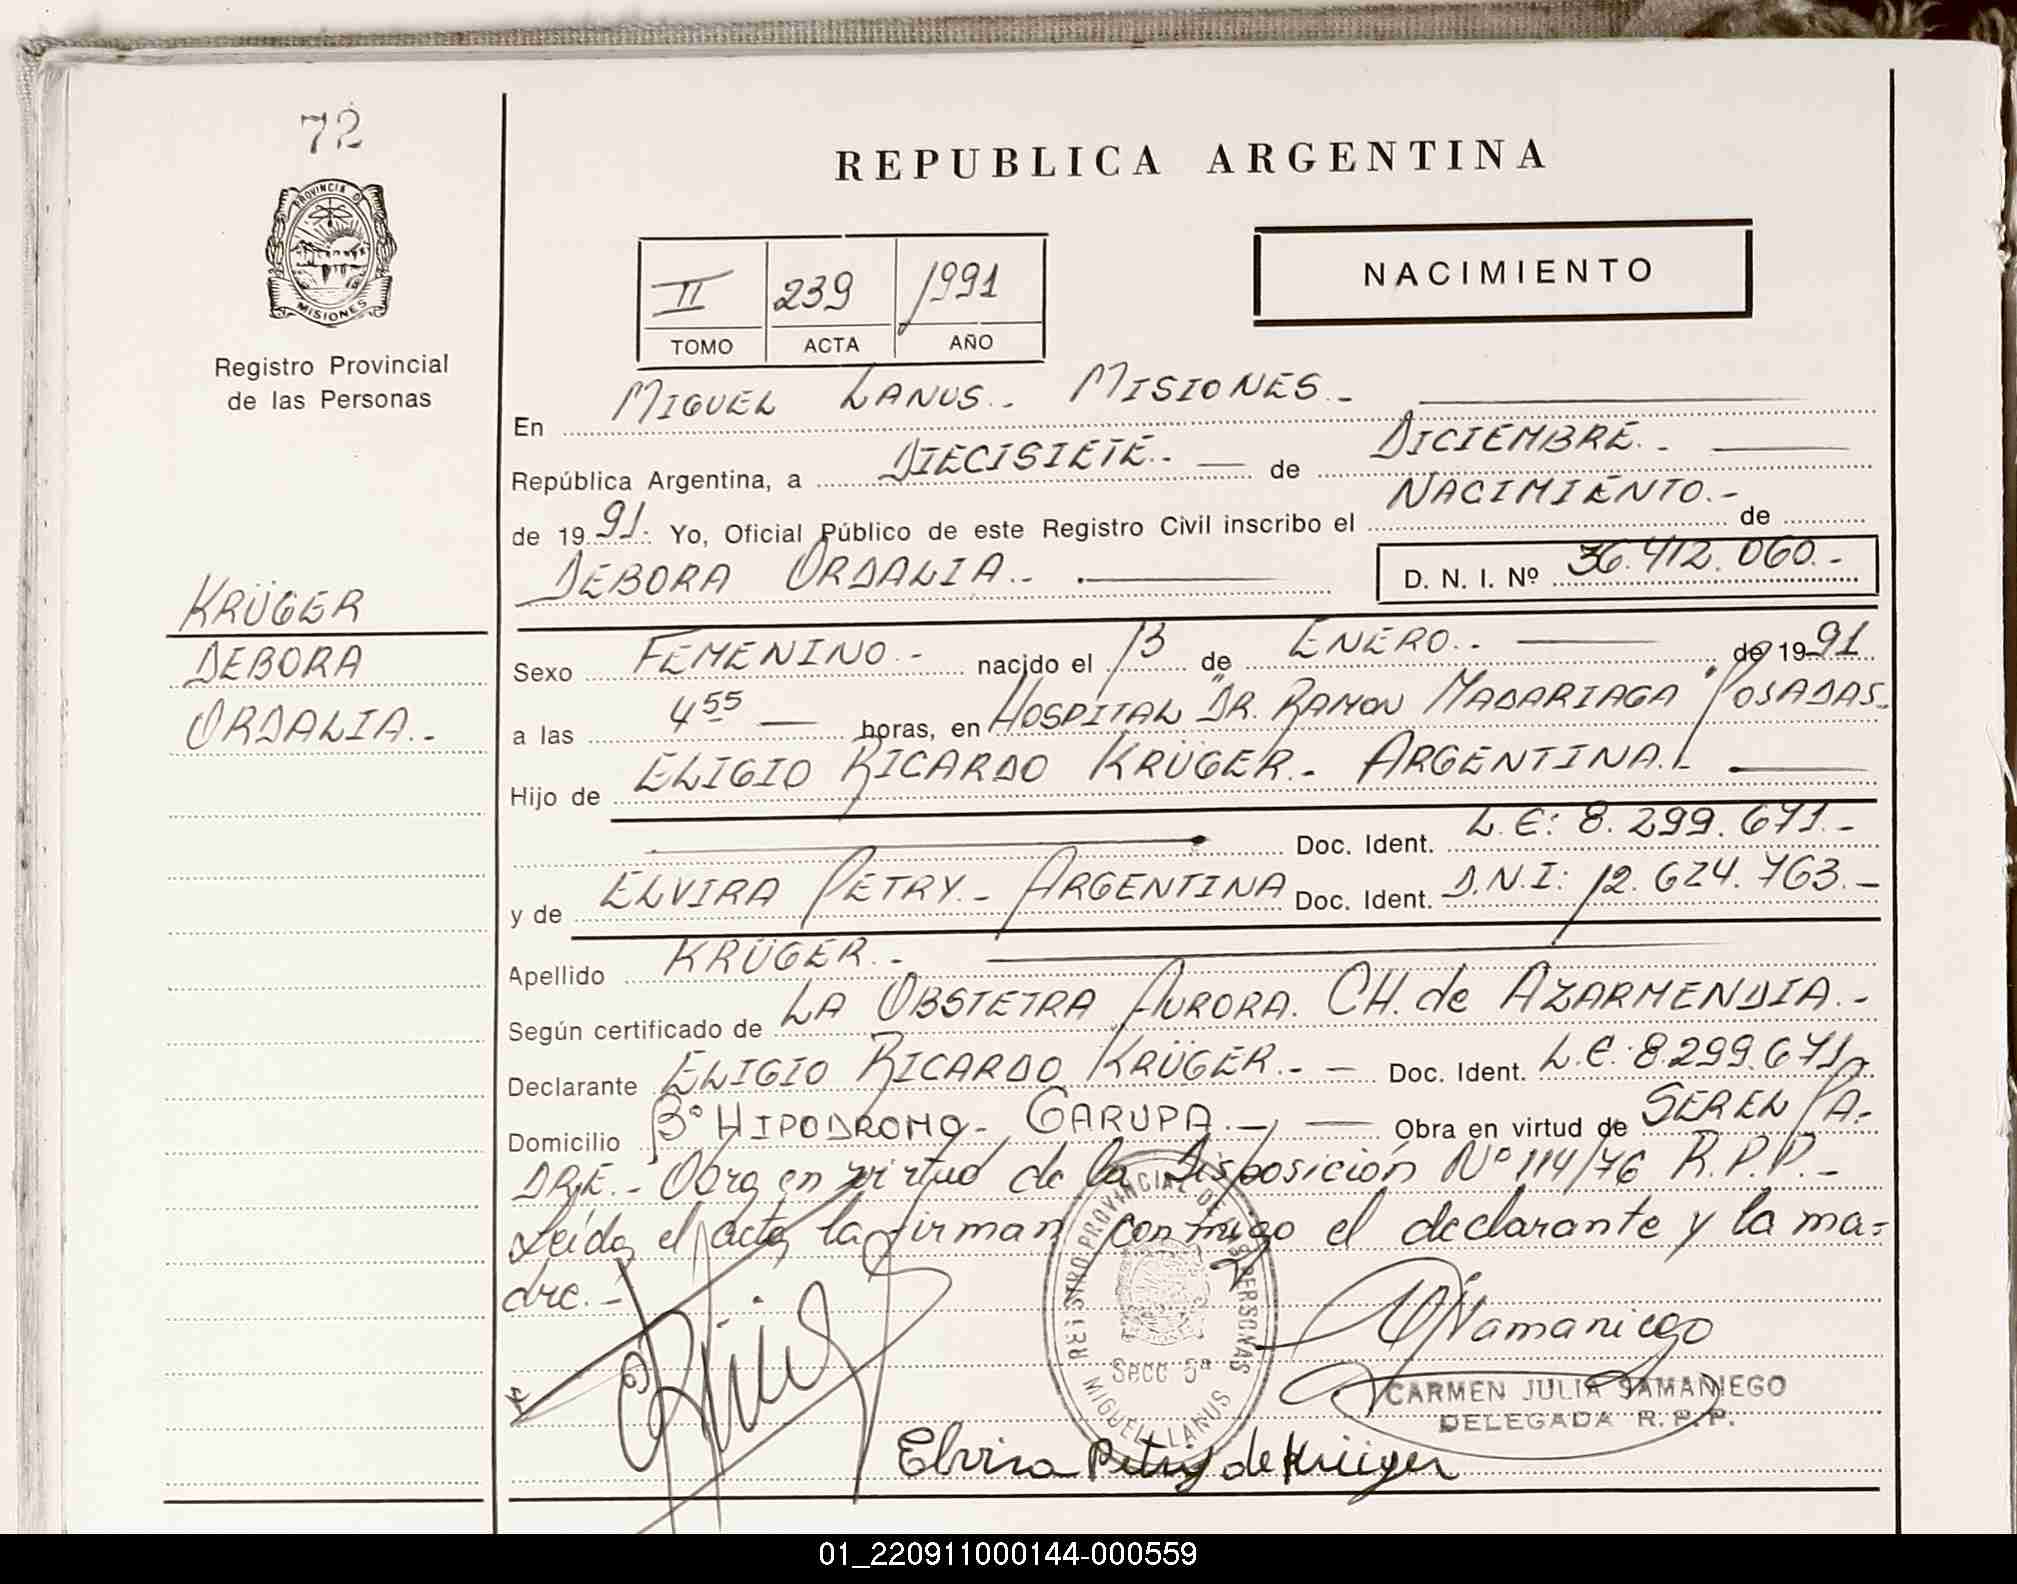 72
PROVINCIA DE
MISIONES
Registro Provincial
de las Personas
KRÜGER
DEBORA
ORDALIA.-
REPUBLICA ARGENTINA
II 239 1991
TOMO ACTA AÑO
NACIMIENTO
En MIGUEL LANUS.- MISIONES.-
República Argentina, a DIECISIETE.- de DICIEMBRE.-
de 1991. Yo, Oficial Público de este Registro Civil inscribo el NACIMIENTO.- de
DEBORA ORDALIA.-
D. N. I. Nº 36.412.060.-
Sexo FEMENINO.- nacido el 13 de ENERO.- de 1991
a las 4 55 horas, en HOSPITAL "DR. RAMON MADARIAGA" POSADAS.
Hijo de ELIGIO RICARDO KRÜGER.- ARGENTINA.
Doc. Ident. L.E: 8.299.671.-
y de ELVIRA PETRY.- ARGENTINA Doc. Ident. D.N.I: 12.624.763.-
Apellido KRÜGER.-
Según certificado de LA OBSTETRA AURORA. CH. de AZARMENDIA.-
Declarante ELIGIO RICARDO KRÜGER.- Doc. Ident. L.E: 8.299.671
Domicilio Bº HIPODROMO- GARUPA.- Obra en virtud de SER EL PA-
DRE.- Obra en virtud de la Disposición Nº 114/76 R.P.P.-
Leída el acta la firman conmigo el declarante y la ma-
dre.-
REGISTRO PROVINCIAL DE LAS PERSONAS
Secc 5ª
MIGUEL LANUS
Samaniego
CARMEN JULIA SAMANIEGO
DELEGADA R. P. P.
Elvira Petry de Krüger
01_220911000144-000559